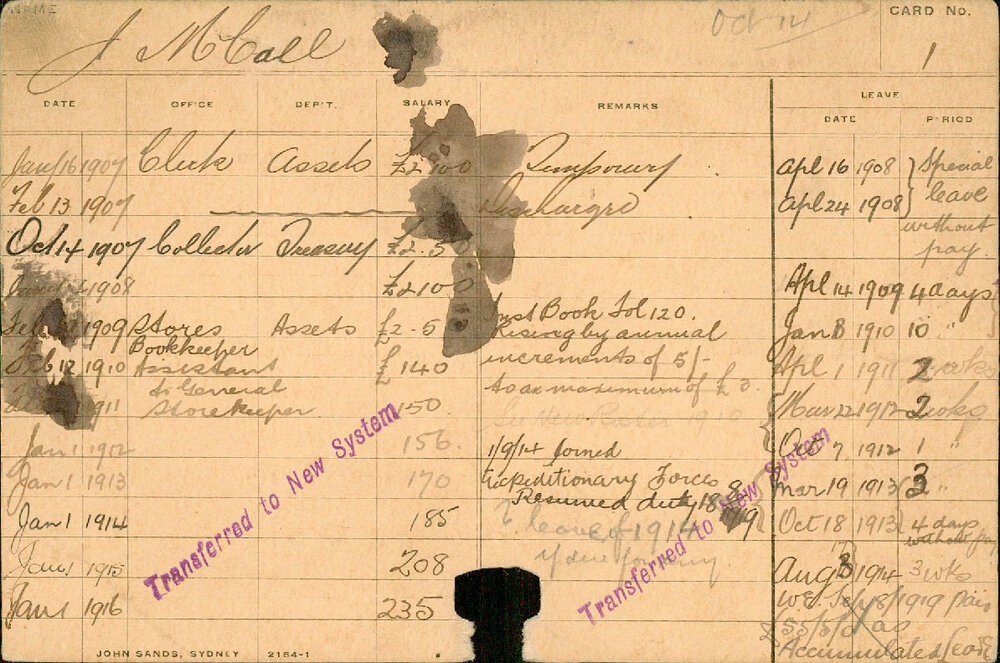 NAME
J McCall
Oct 14
CARD No.
1
DATE OFFICE DEP'T. SALARY REMARKS
LEAVE
DATE PERIOD
Jany 16 1907 Clerk Assets Temporary
Feb 13 1907 Discharged
Oct 14 1907 Collector Treasury £2.5
1908 £2100
1909 Stores Assets £2-5 Inst Book Fol 120.
Bookkeeper Rising by annual
12 1910 Assistant £140 increments of 5/-
to General to a maximum of £3
1911 Storekeeper 150
Jan 1 1912 156.
1/9/14 Joined
Jan 1 1913 170 Expeditionary Forces
Resumed duty 18
Jan 1 1914 185 leave of 1914
Jan 1 1915 208
Jan 1 1916 235
Apl 16 1908 Special
Apl 24 1908 leave
without
pay.
Apl 14 1909 4 days
Jan 8 1910 10 "
Apl 1 1911 2 weeks
Mar 22 1912 2 wks
Oct 7 1912 1 "
Mar 19 1913 3 "
Oct 18 1913 4 days
without pay
Aug 8 1914 3 wks
1919
Accumulated
Transferred to New System
Transferred to New System
JOHN SANDS, SYDNEY 2154-1